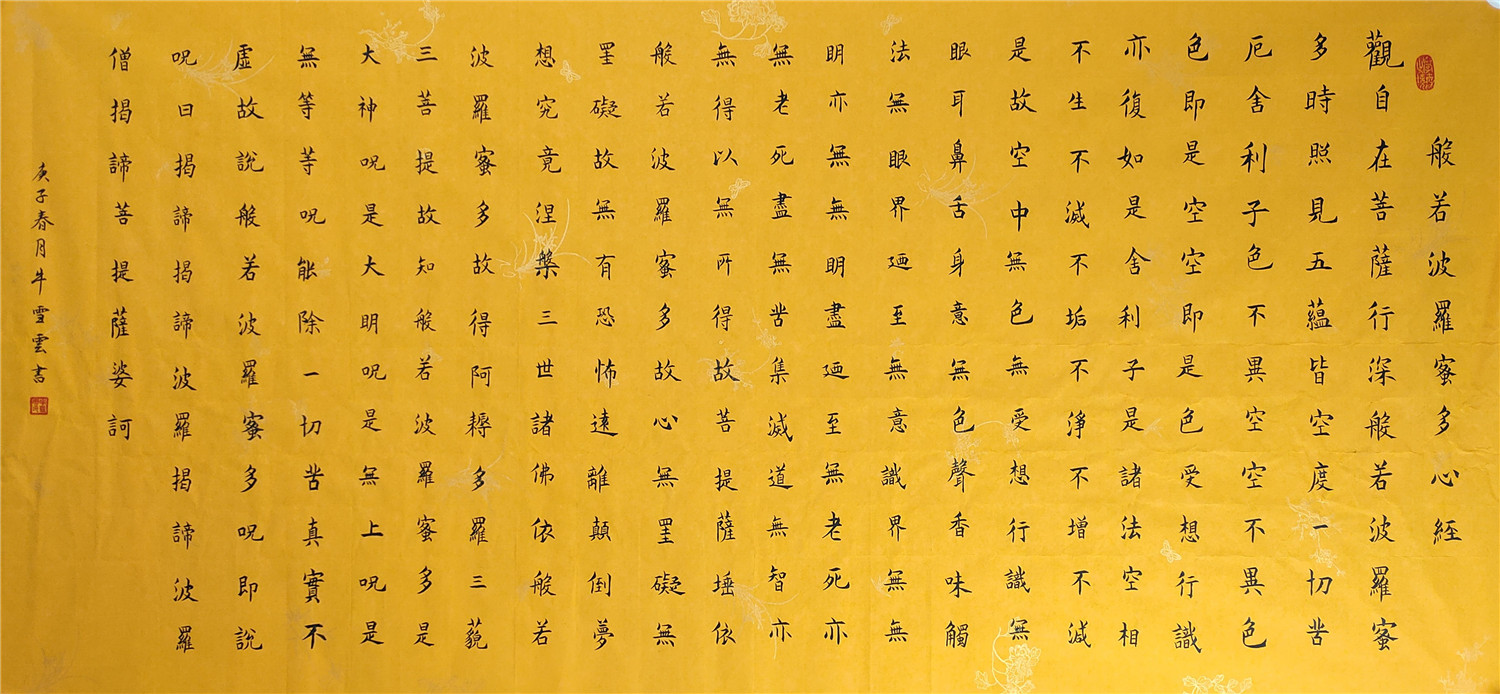 般若波羅蜜多心経
觀自在菩薩行深般若波羅蜜
多時照見五蘊皆空度一切苦
厄舍利子色不異空空不異色
色即是空空即是色受想行識
亦復如是舍利子是諸法空相
不生不滅不垢不淨不增不減
是故空中無色無受想行識無
眼耳鼻舌身意無色聲香味觸
法無眼界廼至無意識界無無
明亦無無明盡廼至無老死亦
無老死盡無苦集滅道無智亦
無得以無所得故菩提薩埵依
般若波羅蜜多故心無罣礙無
罣礙故無有恐怖遠離顛倒夢
想究竟涅槃三世諸佛依般若
波羅蜜多故得阿耨多羅三藐
三菩提故知般若波羅蜜多是
大神呪是大明呪是無上呪是
無等等呪能除一切苦真實不
虛故說般若波羅蜜多呪即說
呪曰揭諦揭諦波羅揭諦波羅
僧揭諦菩提薩婆訶
庚子春月牛雪雲書